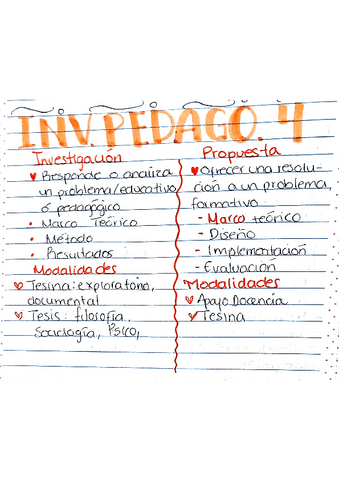 INV. PEDAGO. 4
Investigación
Responde o analiza
un problema/educativo
ó pedagógico
• Marco Teórico
• Método
• Resultados
Modalidades
Tesina: exploratorio,
documental
Tesis: filosofía,
Sociología, Psico,
Propuesta
Ofrecer una resolu-
ción a un problema,
formativo
- Marco teórico
- Diseño
- Implementación
- Evaluación
Modalidades
Apoyo Docencia
Tesina